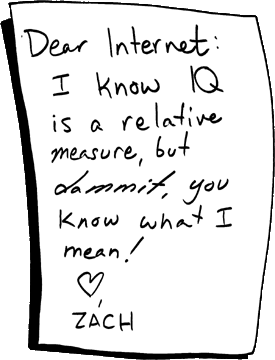 Dear Internet:
I know IQ
is a relative
measure, but
dammit, you
know what I
mean!
♡,
ZACH